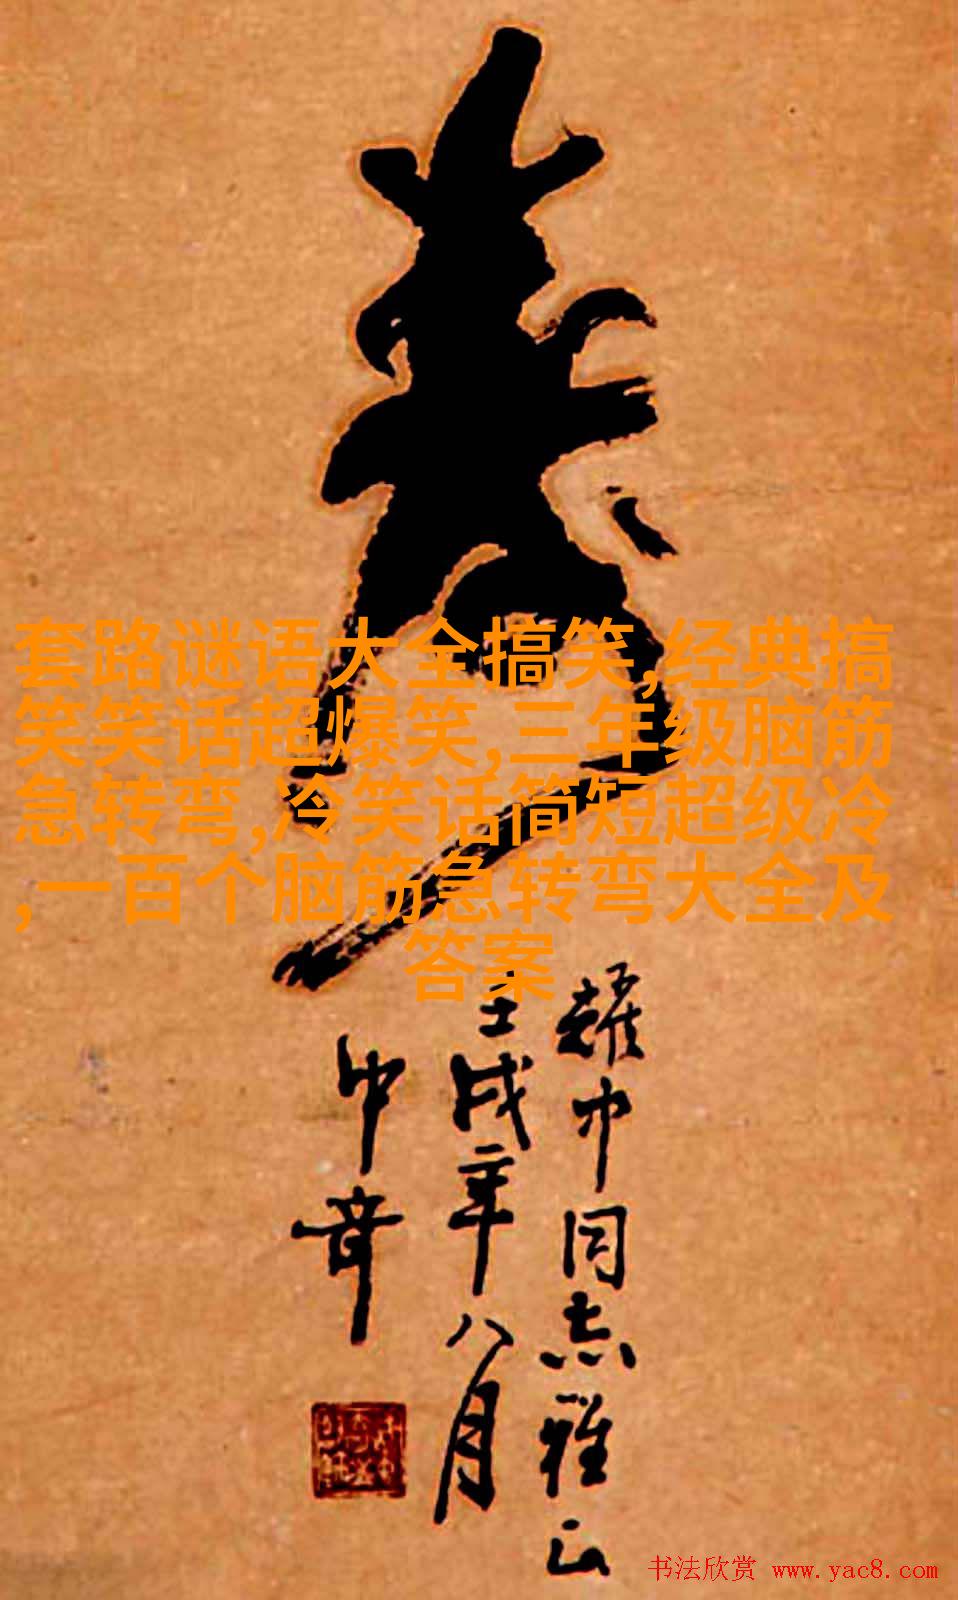 套路谜语大全搞笑,经典搞
笑笑话超爆笑,三年级脑筋
急转弯,冷笑话简短超级冷
,一百个脑筋急转弯大全及
答案
耀中同志雅正
壬戌年八月
中章
书法欣赏 www.yac8.com